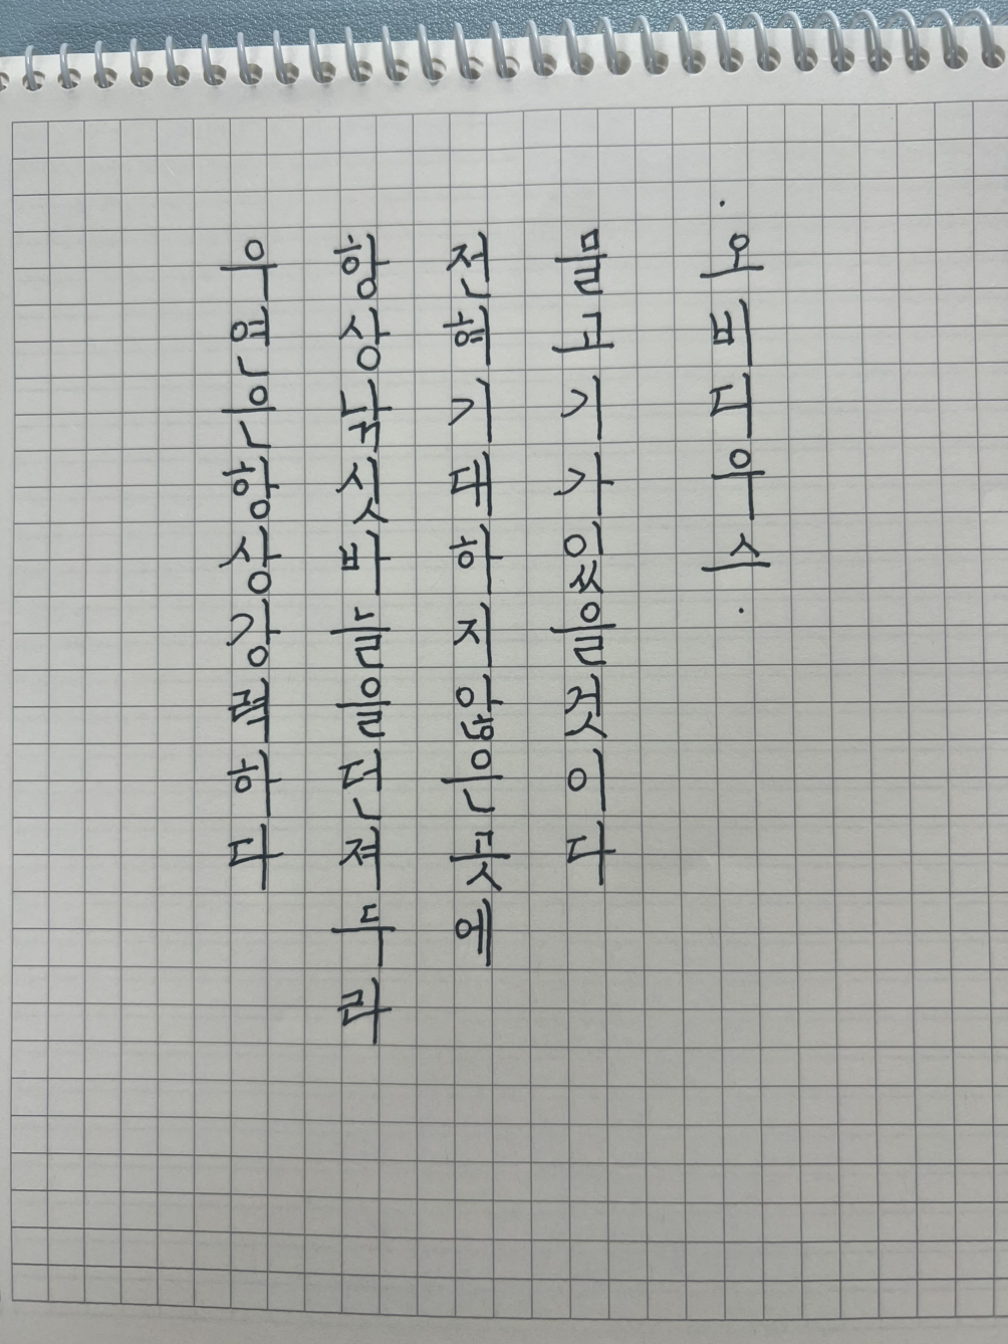 우연은항상강력하다
항상낚싯바늘을던져두라
전혀기대하지않은곳에
물고기가있을것이다
·오비디우스·